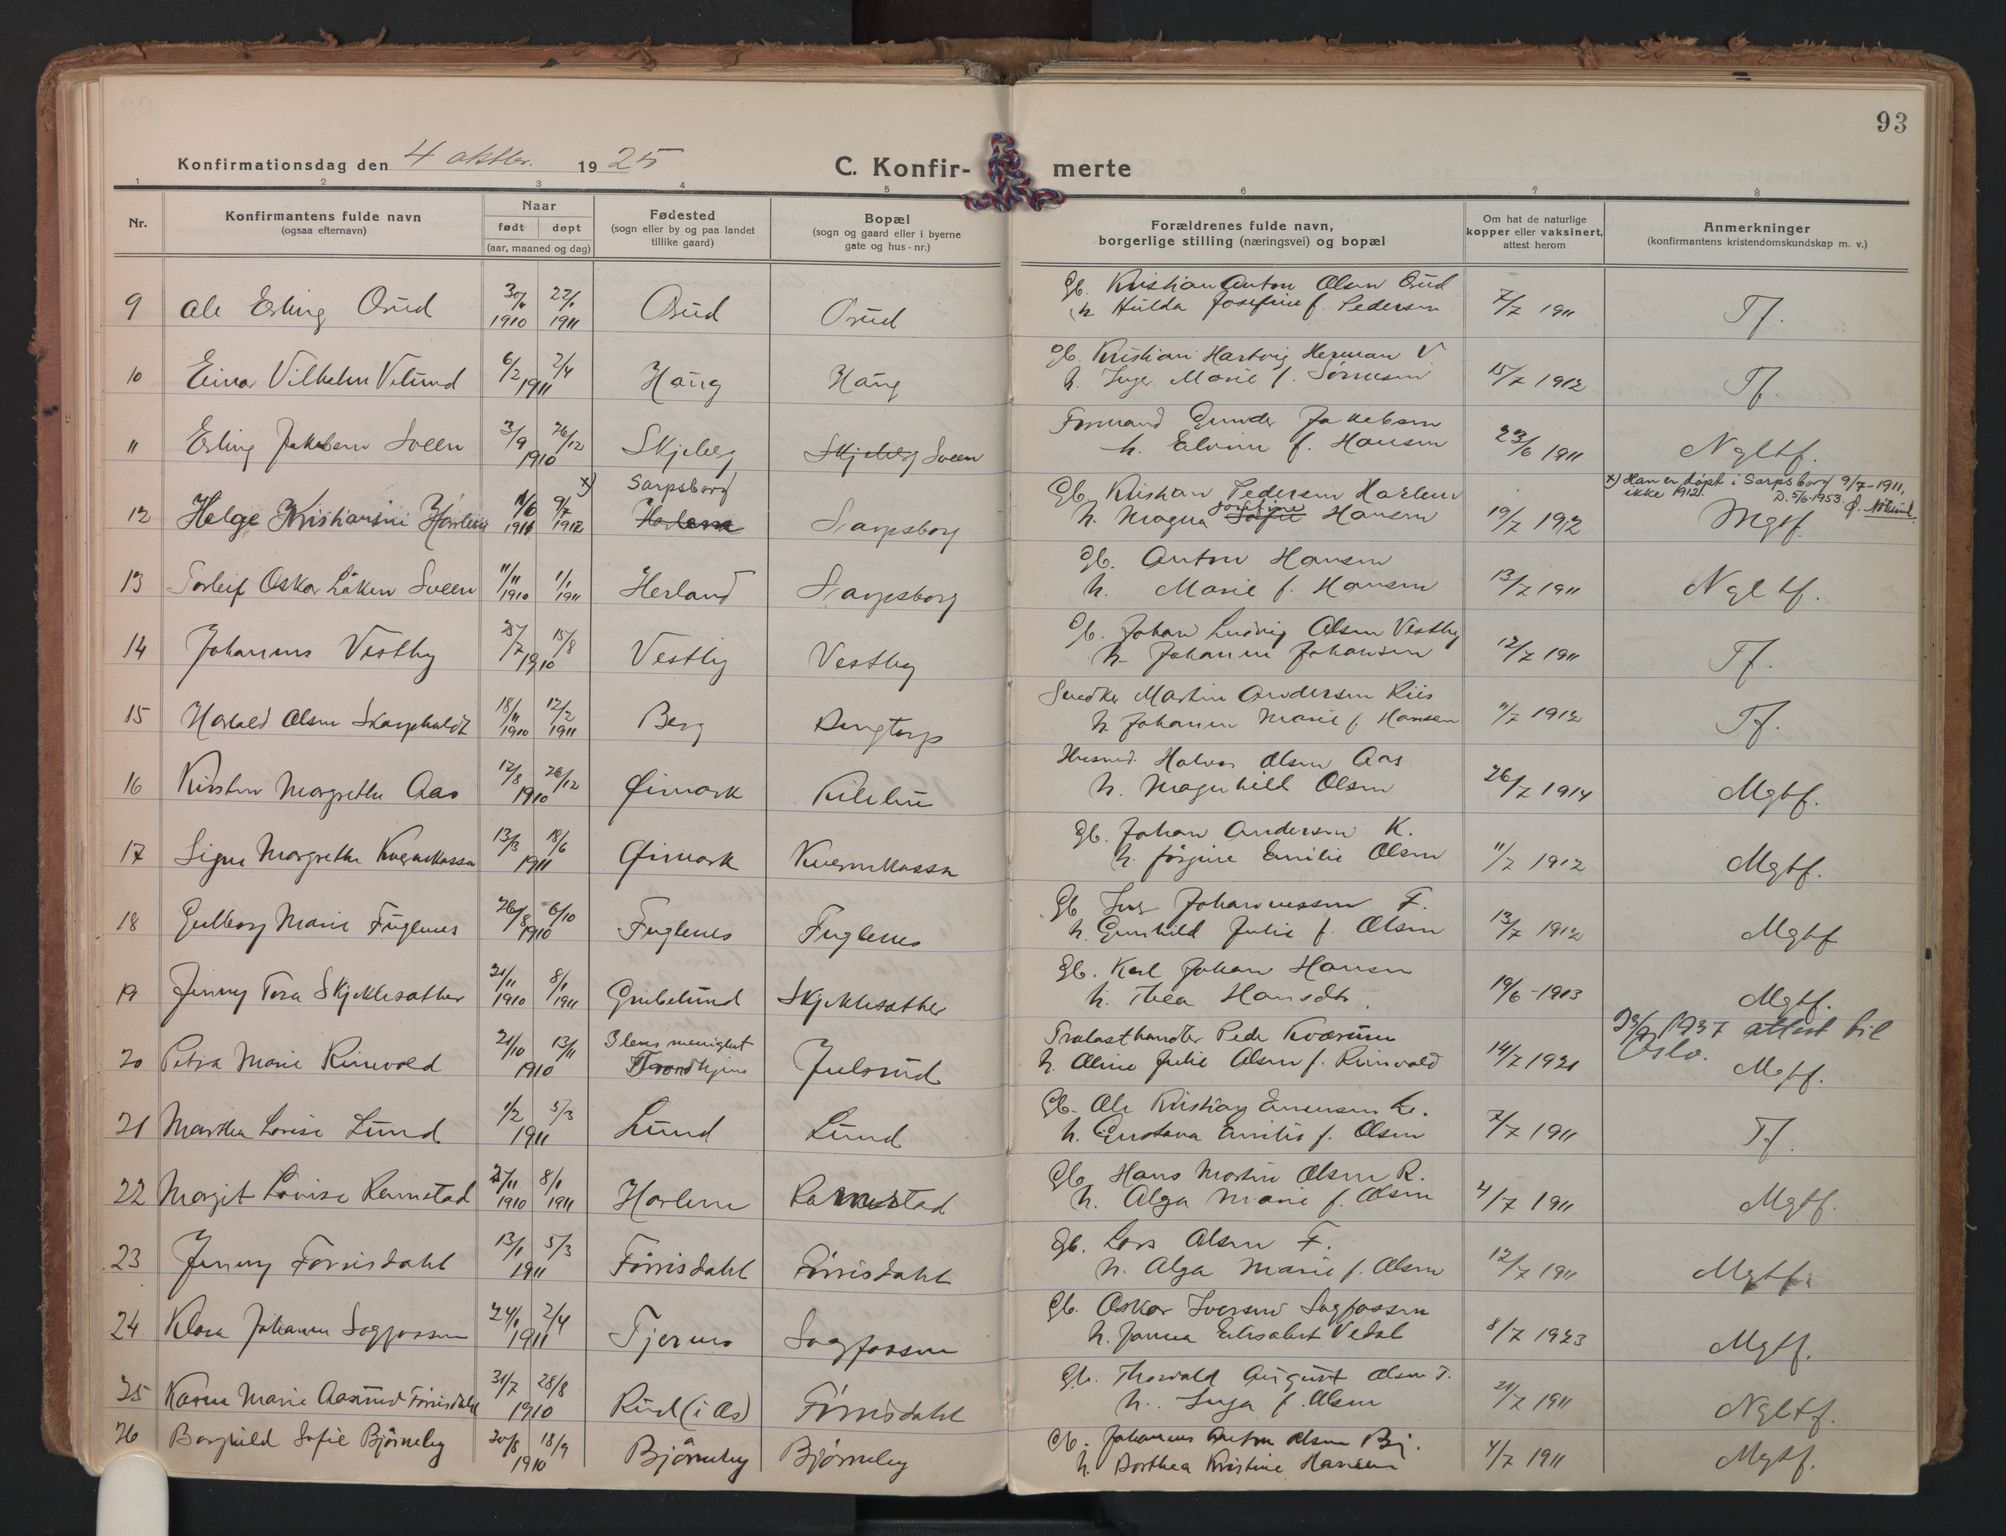 93
Konfirmationsdag den 4 oktbr. 1925 C. Konfir- merte
1 2 3 4 5 6 7 8
Nr. Konfirmantens fulde navn (ogsaa efternavn) Naar født døpt (aar, maaned og dag) Fødested (sogn eller by og paa landet tillike gaard) Bopæl (sogn og gaard eller i byerne gate og hus-nr.) Forældrenes fulde navn, borgerlige stilling (næringsvei) og bopæl Om hat de naturlige kopper eller vaksinert, attest herom Anmerkninger (konfirmantens kristendomskundskap m. v.)
9 Ole Erling Orud 1910 1911 Orud Orud Gb. Kristian Anton Olsen Orud
h. Hulda Josefine f. Pedersen 7/7 1911 Tf.
10 Vilhelm 6/2 2/4 1911 Haug Haug Gb. Kristian Hartvig Herman V.
h. Inger Marie f. Sørensen 15/7 1912 Tf.
11 Erling Jakobsen Sveen 3/9 26/12 1910 Skjeberg Skjeberg Sveen Formand Gunder Jakobsen
h. Elvine f. Hansen 23/6 1911 Ngltf.
12 Helge Kristiansen Harlem 11/6 1911 9/7 1912 x) Sarpsborg Harlem Sarpsborg Gb. Kristian Pedersen Harlem
h. Magna Josefine Sofie Hansen 19/7 1912 Mgtf.
x) Han er døpt i Sarpsborg 9/7-1911,
ikke 1912. D. 5/6-1953.
13 Torleif Oskar Sveen 11/11 1910 1/1 1911 Herland Sarpsborg Gb. Anton Hansen
h. Marie f. Hansen 13/7 1911 Ngltf.
14 Johannes Vestby 25/7 15/8 1910 Vestby Vestby Gb. Johan Ludvig Olsen Vestby
h. Johanne Johansen 12/7 1911 Tf.
15 Harald Olsen Skarpholdt 18/11 1910 12/2 1911 Berg Dingtorp Snedker Martin Andersen Riis
h. Johanne Marie f. Hansen 11/7 1912 Tf.
16 Kirsten Margrethe Aas 12/8 26/12 1910 Øimark Kilebu Husmd. Halvor Olsen Aas
h. Magnhild Olsen 26/7 1914 Mgtf.
17 Signe Margrethe Kvernkassa 13/3 18/6 1911 Øimark Kvernkassa Gb. Johan Andersen K.
h. Jørgine Emilie Olsen 11/7 1912 Mgtf.
18 Gulborg Marie Fuglenes 26/8 6/10 1910 Fuglenes Fuglenes Gb Johannessen F.
h. Gunhild Julie f. Olsen 13/7 1912 Mgtf
19 Jenny Tora Skjeklesæther 21/11 1910 8/1 1911 Grubelund Skjeklesæther Gb. Karl Johan Hansen
h. Thea Hansdtr. 19/6-1913 Mgtf.
20 Petra Marie Rinvold 21/10 13/11 1910 Ilens menighet Trondhjem Julsrud Trælasthandler Peder Kværum
h. Oline Julie Olsen f. Rinvold 14/7 1921 1937 attest til
Oslo. Mgtf.
21 Marthea Lovise Lund 1/2 5/3 1911 Lund Lund Gb. Ole Kristian L.
h. Gustava Emilie f. Olsen 7/7 1911 Tf.
22 Margit Lovise Ramstad 1910 8/1 1911 Harlem Ramstad Gb Hans Martin Olsen R.
h. Olga Marie f. Olsen 4/7 1911 Mgtf.
23 Jenny Førrisdahl 13/1 5/3 1911 Førrisdahl Førrisdahl Gb. Lars Olsen F.
h. Olga Marie f. Olsen 12/7 1911 Mgtf.
24 Klara Johanne Sagfossen 24/1 2/4 1911 Fjernes Sagfossen Gb. Oskar Iversen Sagfossen
h. Janna Elisabet Vedal 8/7 1923 Mgtf.
25 Karen Marie Aasmund Førrisdahl 31/7 28/8 1910 Rud (i Øs) Førrisdahl Gb. Thorvald August Olsen F.
h. Inga f. Olsen 21/7 1911 Ngltf.
26 Borghild Sofie Bjørneby 20/8 18/9 1910 Bjørneby Bjørneby Gb. Johannes Anton Olsen Bj.
h. Dorthea Kristine Hansen 4/7 1911 Mgtf.